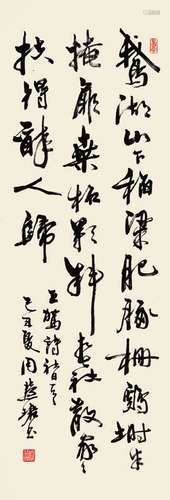 鵝湖山下稻粱肥豚柵鷄塒半
掩扉桑柘影斜春社散家々
扶得醉人歸
王駕詩
己丑夏周慧珺书